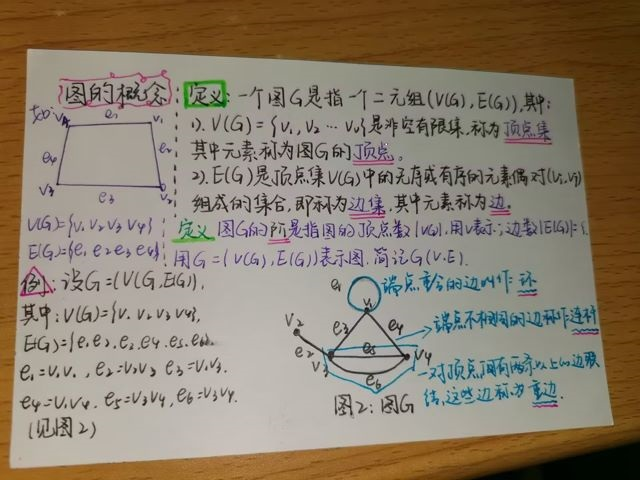 图的概念
如: V4 e1 V1
e4 e2
V3 e3 V2
V(G)={V1 V2 V3 V4}
E(G)={e1 e2 e3 e4}
定义: 一个图G是指一个二元组(V(G), E(G)), 其中:
1). V(G)={V1, V2 … Vn}是非空有限集, 称为顶点集
其中元素称为图G的顶点。
2). E(G)是顶点集V(G)中的无序或有序的元素偶对(Vi,Vj)
组成的集合, 即称为边集, 其中元素称为边。
定义 图G的阶是指图的顶点数|V(G)|, 用V表示; 边数|E(G)|=ε
用G=(V(G), E(G))表示图. 简记G(V.E).
例: 设G=(V(G, E(G)),
其中: V(G)={V1 V2 V3 V4}
E(G)={e1 e2. e3 e4. e5. e6}.
e1=V1V1, e2=V2V3 e3=V1V3.
e4=V1V4. e5=V3V4, e6=V3V4.
(见图2)
e1 端点重合的边叫作环
V1
V2 e3 e4 端点不相同的边称作连杆
e2 e5
V3 V4
e6 一对顶点间有两条以上的边联
结, 这些边称为重边.
图2: 图G